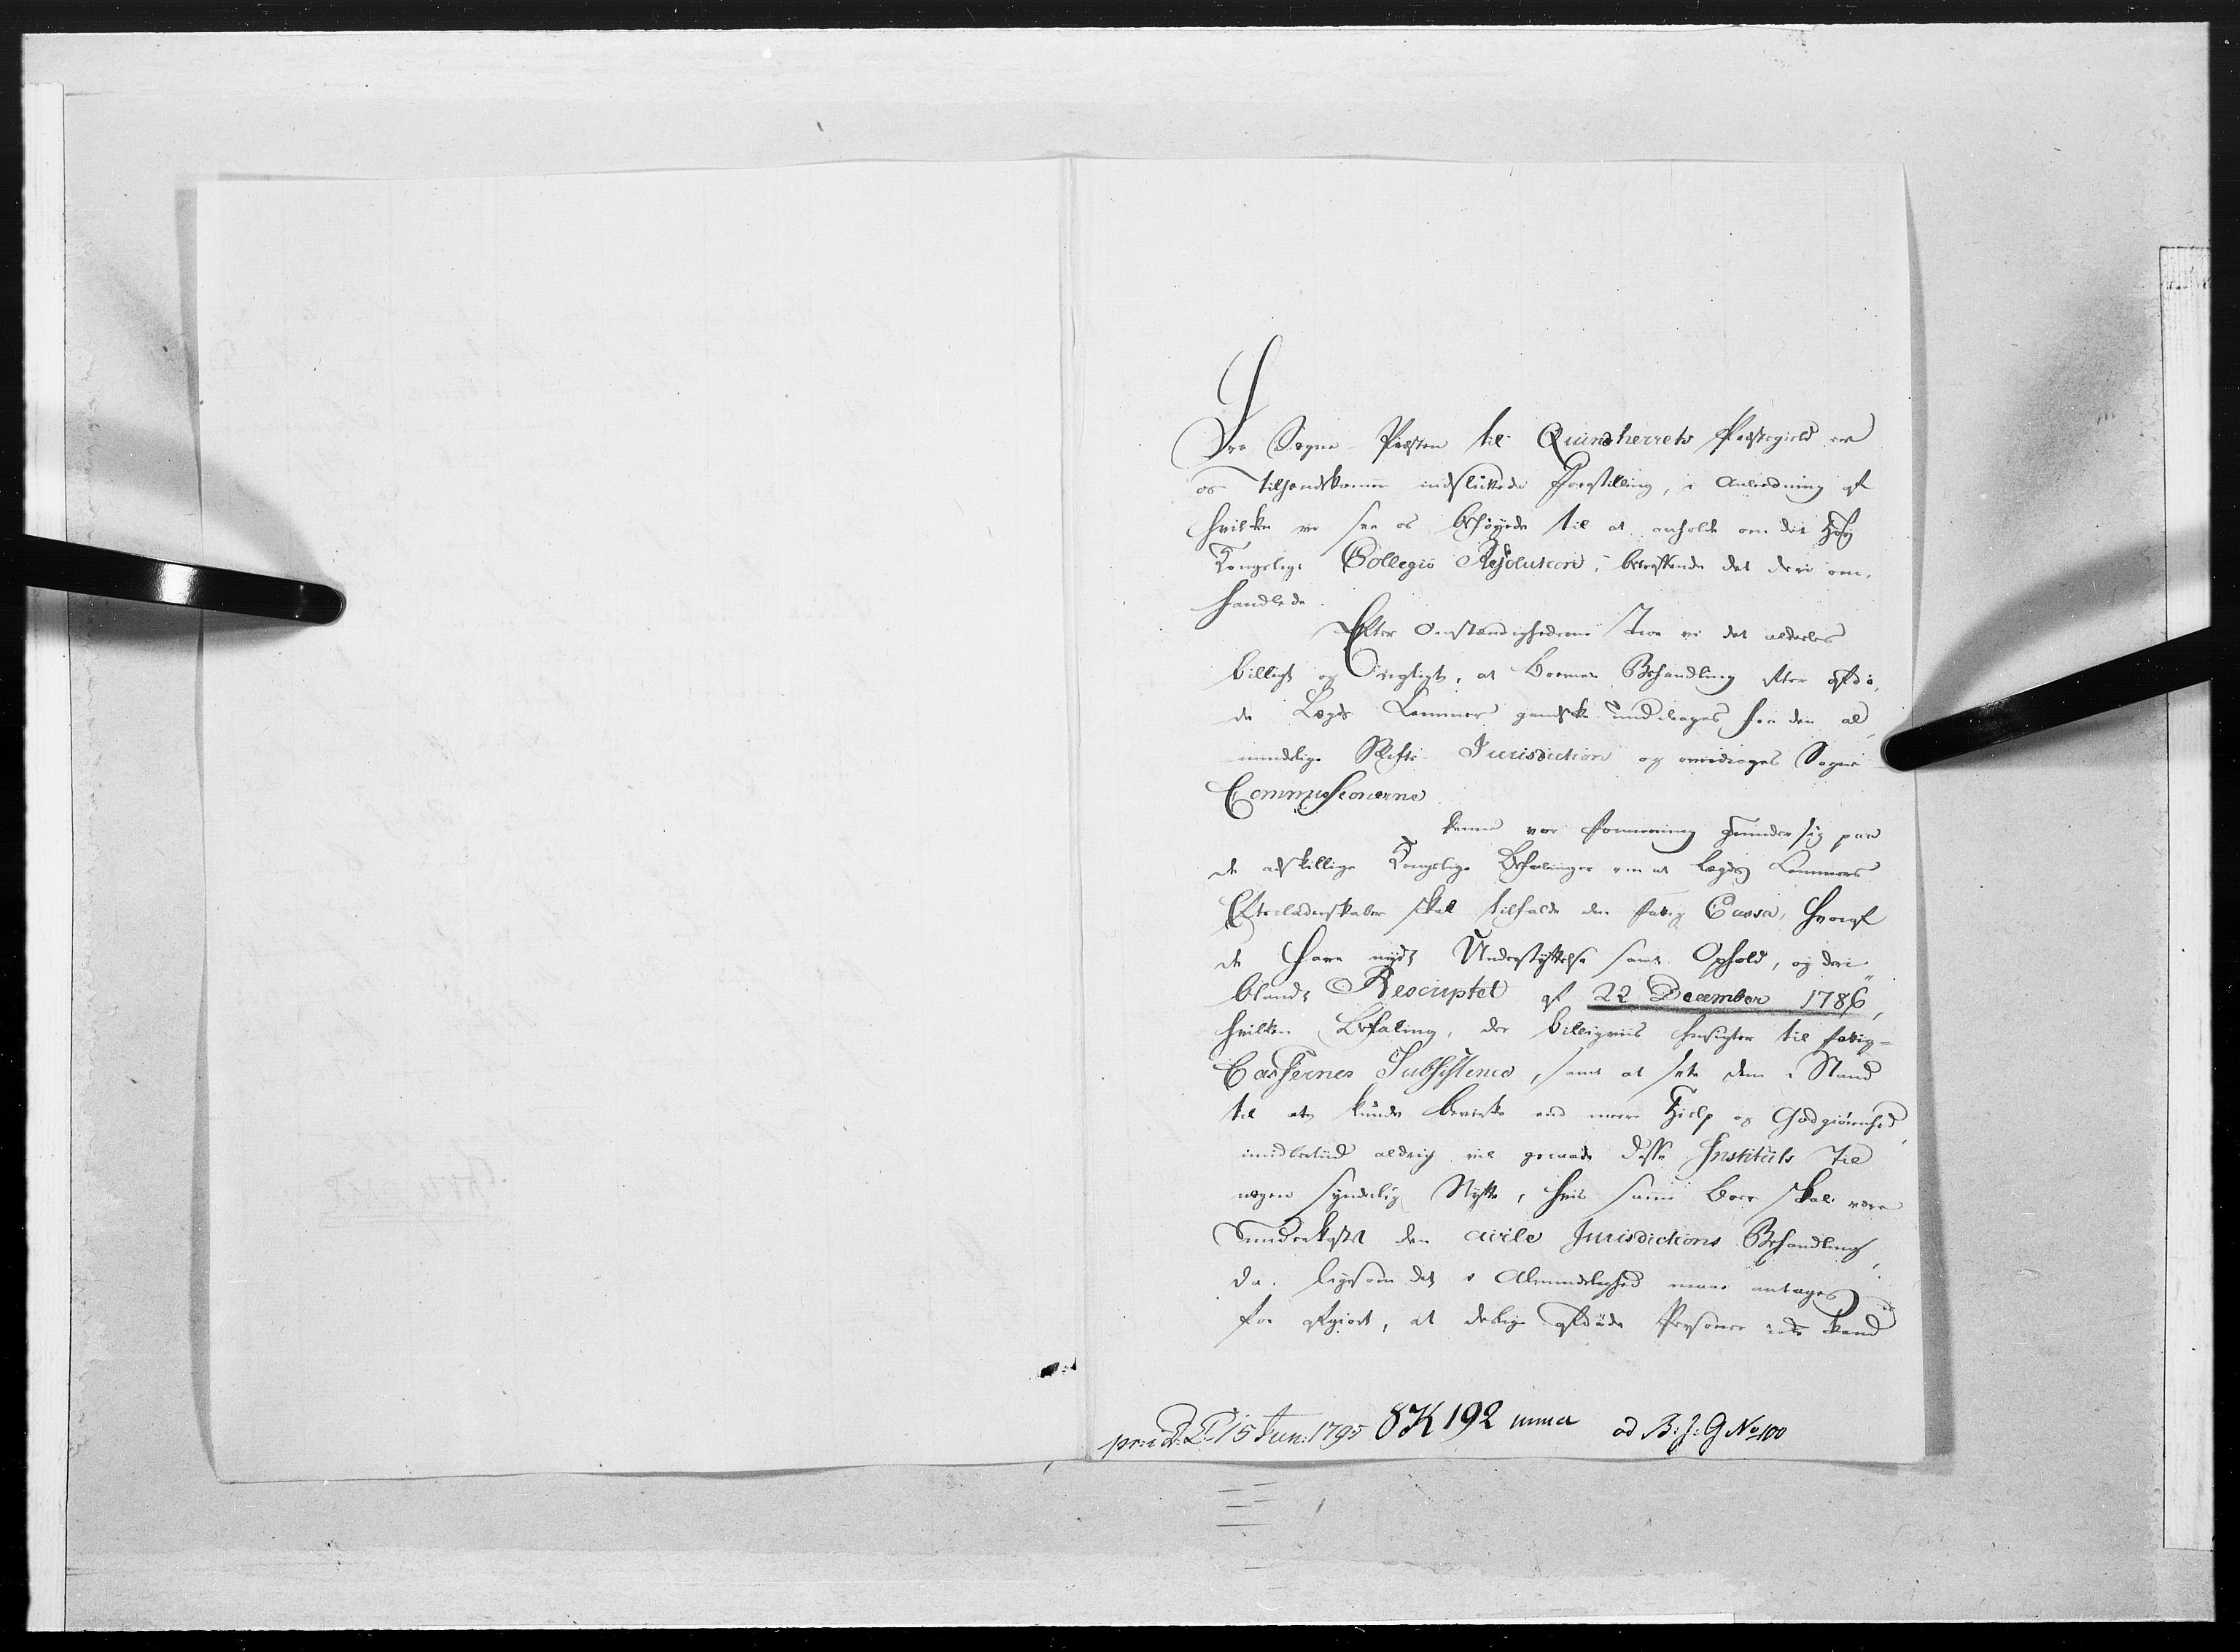 Fra Sogne-Præsten til Quindherrets Præstegield er
os tilhændekommen indsluttede Forestilling, i Anledning af
hvilken vi see os beføyede til at anholde om det Høy
Kongelige Collegii Resolution, betreffende det deri om-
handlede.
Efter Omstændighederne troe vi det aldeles
billigt og vigtigt, at Boernes Behandling efter afdø-
de Lægds Lemmer gandske unddrages fra den al-
mindelige Skifte Jurisdiction og overdrages Sogne-
Commissionerne
denne vor Formening grunder sig paa
de adskillige Kongelige Befalinger om at Lægds Lemmers
Efterladenskaber skal tilfalde den Fattig Cassa, hvoraf
de have nydt Understyttelse samt Ophold, og deri-
blandt Rescriptet af 22 December 1786,
hvilken Befaling, der billigviis hensigter til Fattig-
Cassernes Subsistence, samt at sette dem i Stand
til at kunde bevirke end meere Hielp og Godgiørenhed,
imidlertiid aldrig vil geraade disse Instituts til
nogen synderlig Nytte, hvis saane Boer skal være
underkastet den civile Jurisdictions Behandling,
da ligesom det i Almindelighed maae antages
for afgiort, at deslige afdøde Personer icke kand
pr: d. 15 Jun: 1795 8K 192 ad B: J: G No 100